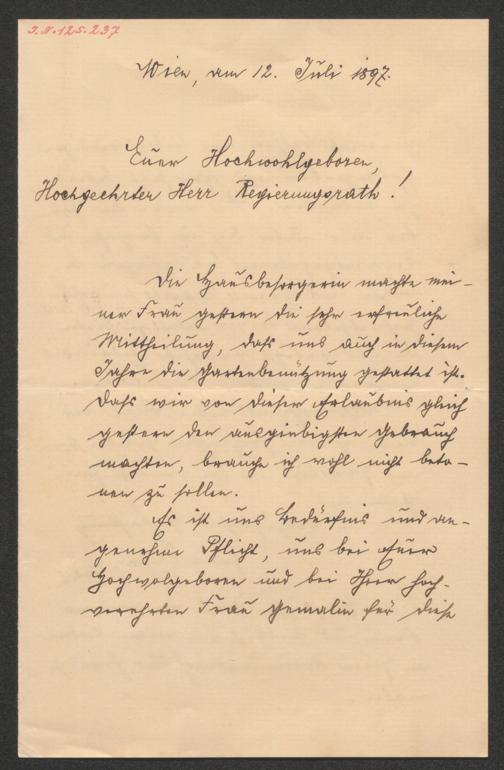 I.N. 125.237
Wien, am 12. Juli 1897.
Euer Hochwohlgeboren,
Hochgeehrter Herr Regierungsrath!
Die Hausbesorgerin machte mei-
ner Frau gestern die sehr erfreuliche
Mittheilung, daß uns auch in diesem
Jahre die Gartenbenützung gestattet ist.
Daß wir von dieser Erlaubnis gleich
gestern den ausgiebigsten Gebrauch
machten, brauche ich wohl nicht beto-
nen zu sollen.
Es ist uns Bedürfnis und an-
genehme Pflicht, uns bei Euer
Hochwolgeboren und bei Ihrer hoch-
verehrten Frau Gemalin für diese